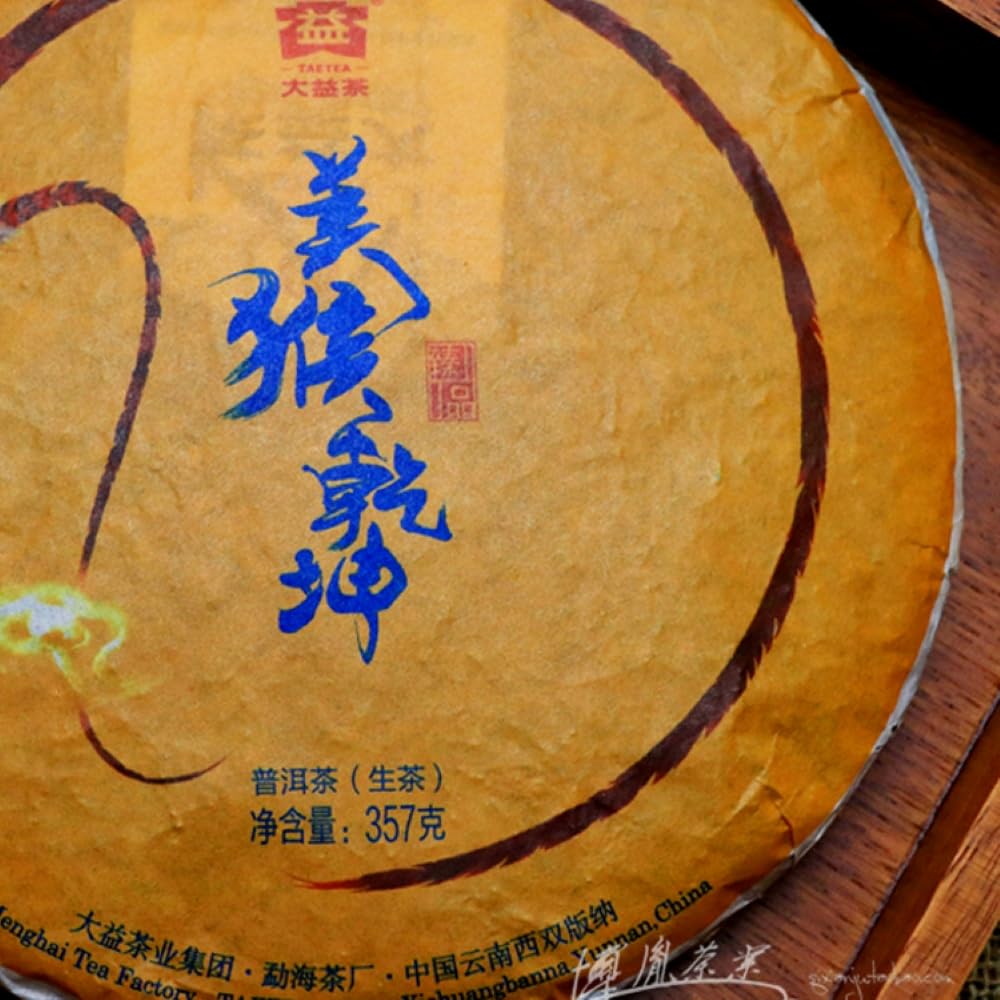 益
TAETEA
大益茶
美猴乾坤
普洱茶（生茶）
净含量：357克
大益茶业集团·勐海茶厂·中国云南西双版纳
Menghai Tea Factory
Xishuangbanna Yunnan, China